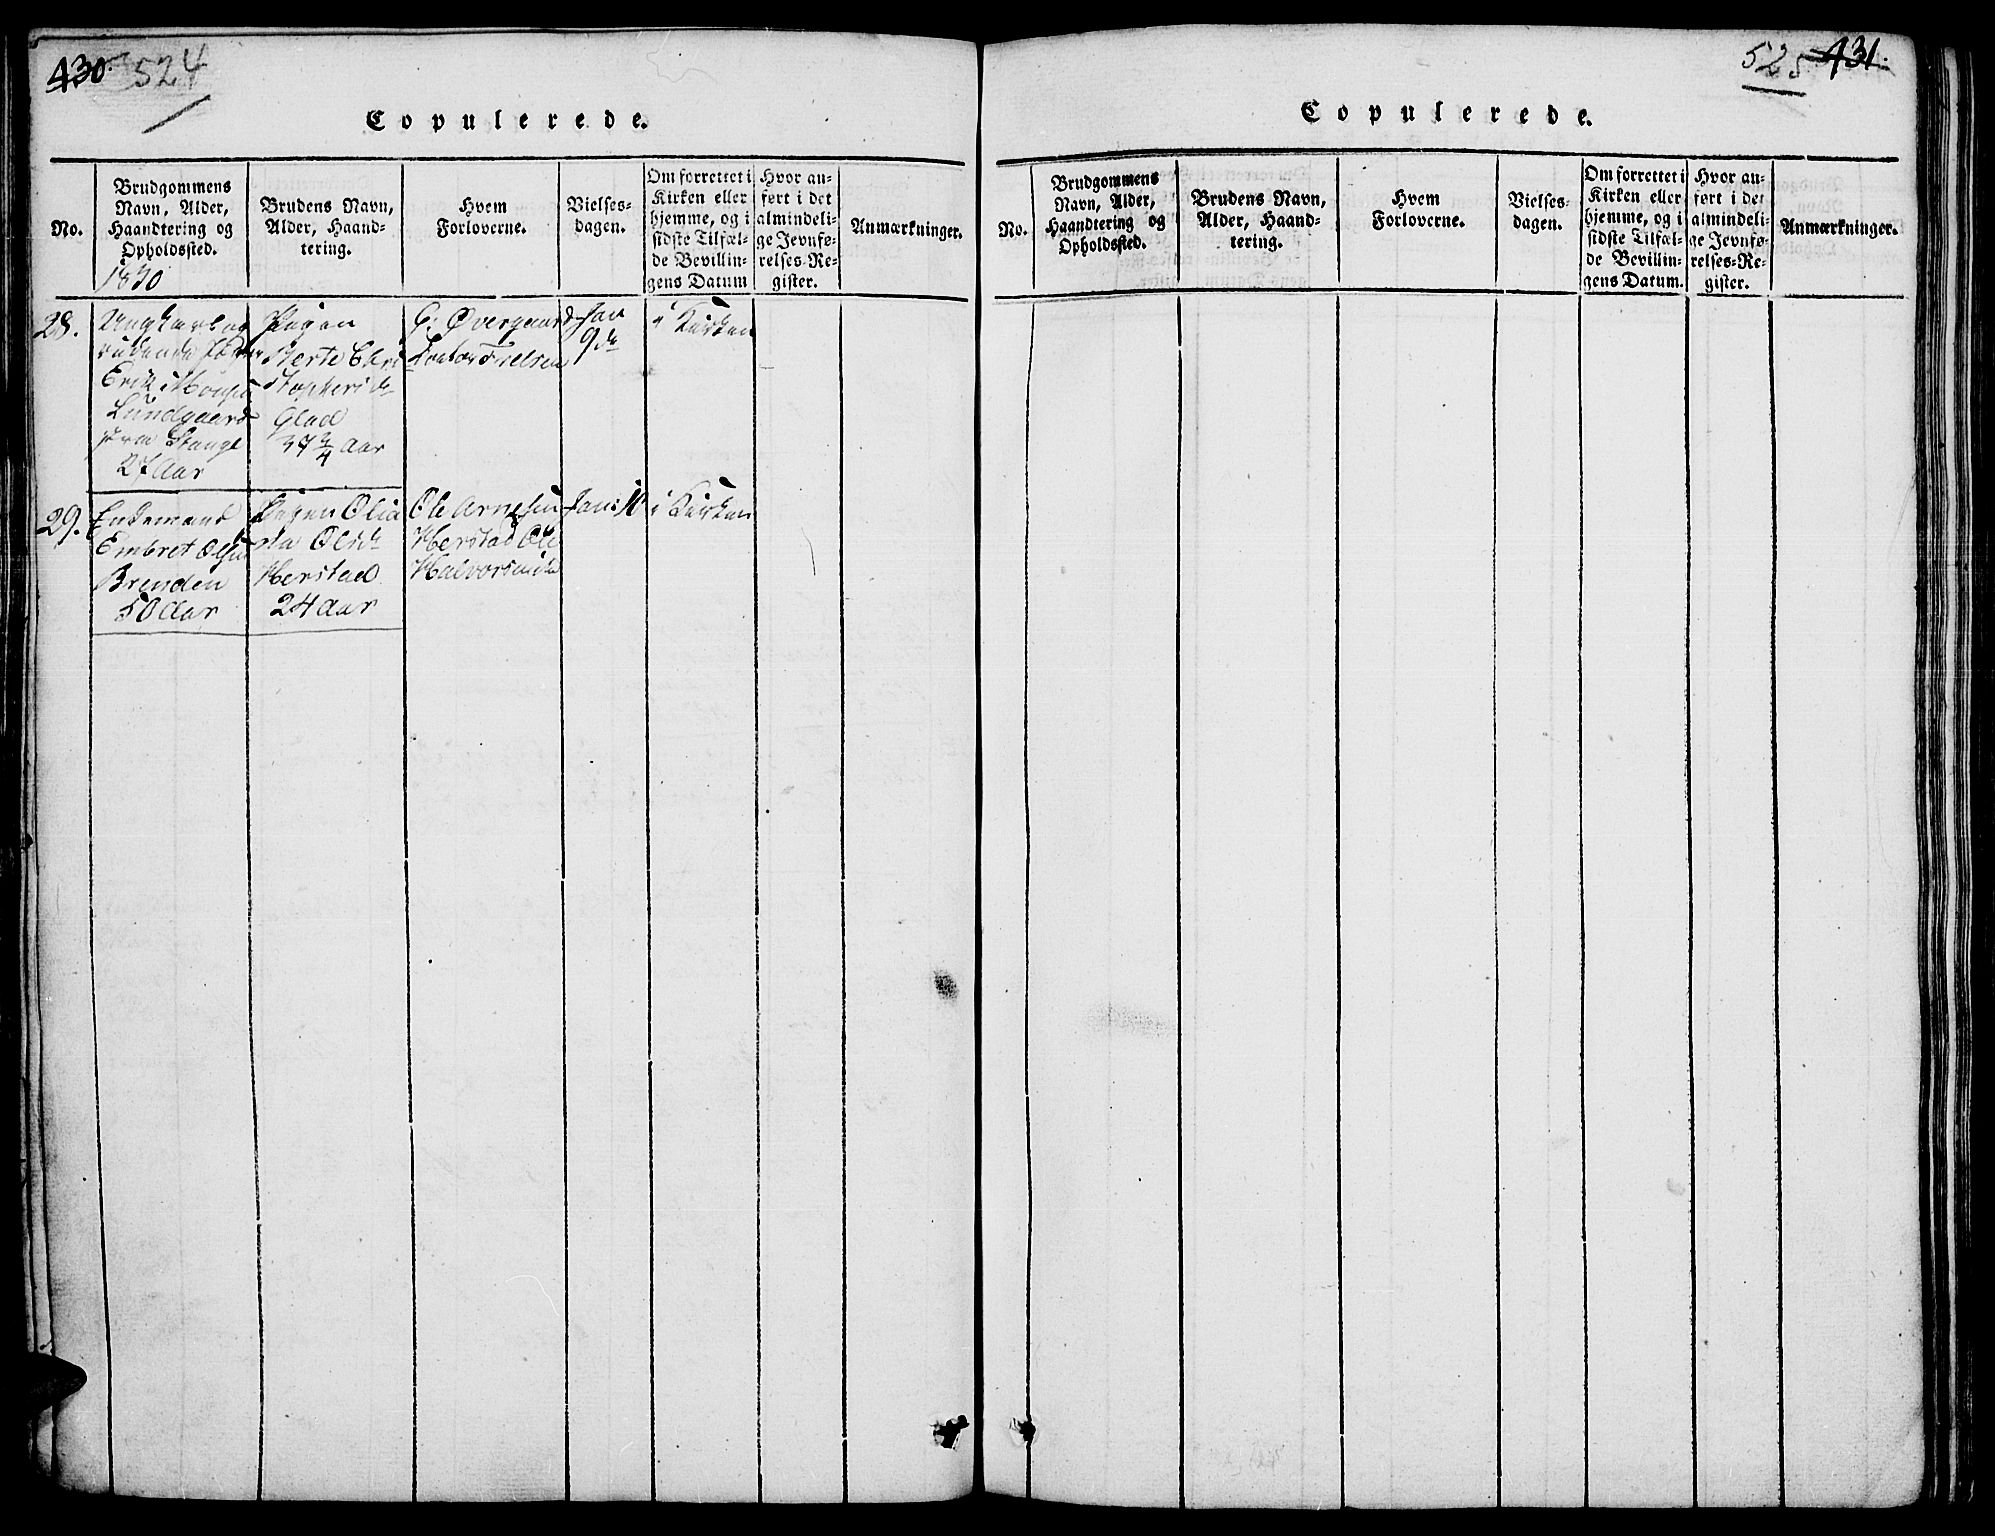 430. 524
Copulerede.
No.
Brudgommens
Navn, Alder,
Haandtering og
Opholdssted.
Brudens Navn,
Alder, Haand-
tering.
Hvem
Forloverne.
Vielses-
dagen.
Om forrettet i
Kirken eller
hjemme, og i
sidste Tilfæl-
de Bevillin-
gens Datum
Hvor an-
ført i det
almindeli-
ge Jevnfø-
relses-Re-
gister.
Anmærkninger.
1830
28.
Ungkarl og
Erik
Lundgaard
fra Stange
27 Aar
Pigen
Berte Chri
Glad
37 3/4 Aar
Øvergaard
Jan
9de
i Kirken
29.
Enkemand
Embret Olsen
Brenden
50 Aar
Pigen Olia
na Olsdr
Herstad
24 Aar
Ole Arnesen
Herstad Ole
Halvorsen
Jan: 10
i Kirken
525 431.
Copulerede.
No.
Brudgommens
Navn, Alder,
Haandtering og
Opholdssted.
Brudens Navn,
Alder, Haand-
tering.
Hvem
Forloverne.
Vielses-
dagen.
Om forrettet i
Kirken eller
hjemme, og i
sidste Tilfæl-
de Bevillin-
gens Datum.
Hvor an-
ført i det
almindeli-
ge Jevnfø-
relses-Re-
gister.
Anmærkninger.